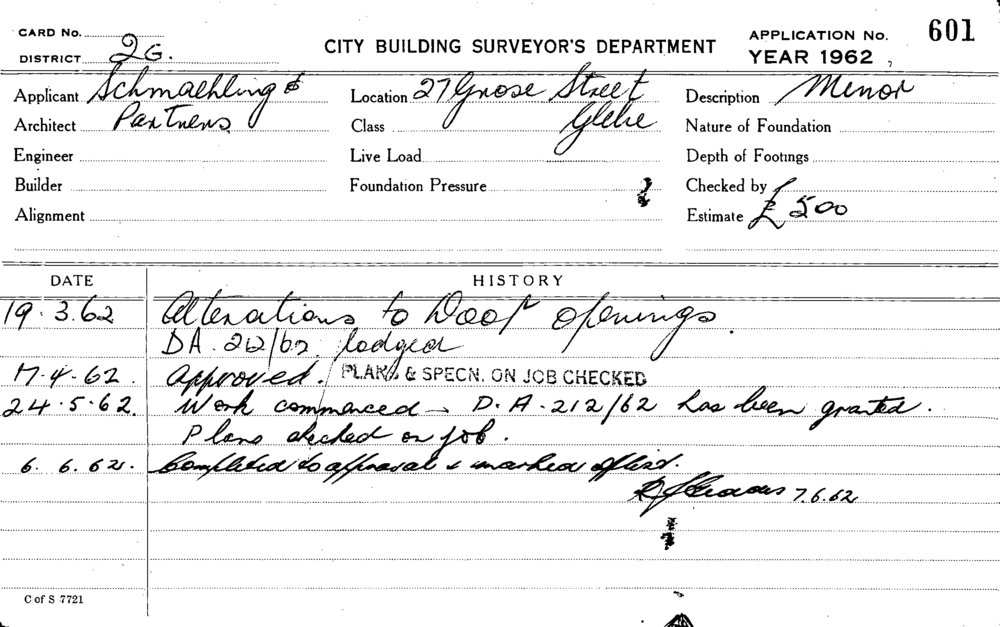 CARD No.
DISTRICT 2G.
CITY BUILDING SURVEYOR'S DEPARTMENT
APPLICATION No. 601
YEAR 1962,
Applicant Schmaehling &
Architect Partners
Engineer
Builder
Alignment
Location 27 Grose Street
Class Glebe
Live Load
Foundation Pressure
Description Minor
Nature of Foundation
Depth of Footings
Checked by
Estimate £ 500
DATE HISTORY
19.3.62 Alterations to Door openings.
DA. 212/62 lodged
17.4.62. Approved. PLANS & SPECN. ON JOB CHECKED
24.5.62. Work commenced - D.A. 212/62 has been granted.
Plans checked on job.
6.6.62. Completed to approval & marked off list.
7.6.62
C of S 7721